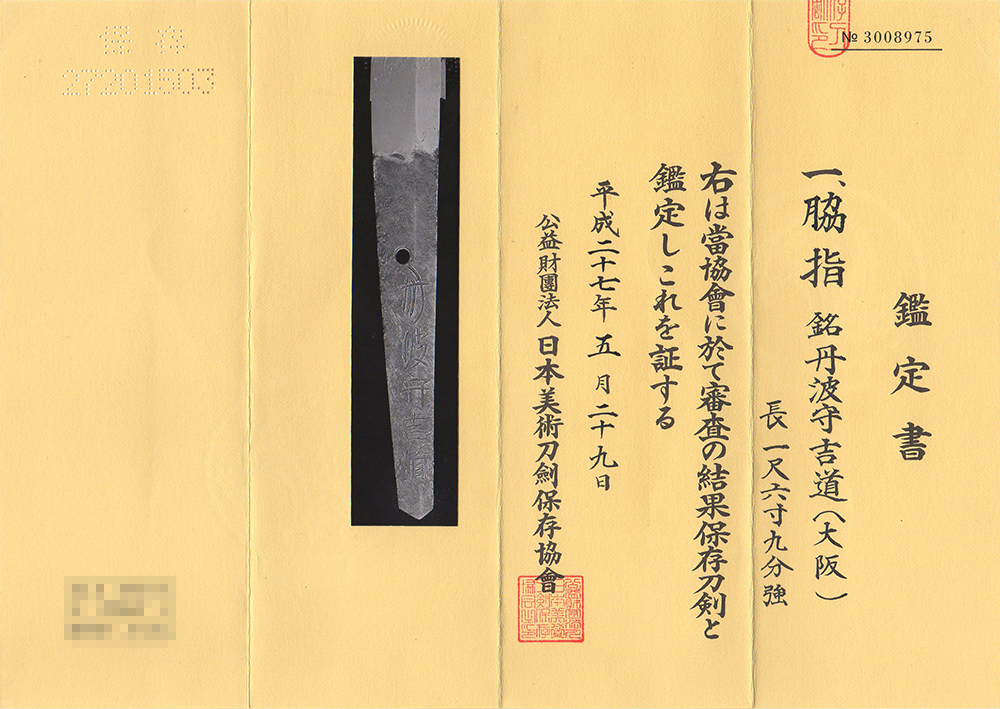 № 3008975
鑑定書
一、脇指 銘 丹波守吉道(大阪)
長 一尺六寸九分強
右は當協會に於て審査の結果保存刀剣と
鑑定しこれを証する
平成二十七年 五 月 二十九日
公益財團法人 日本美術刀劍保存協會
丹波守吉道
保存
27201503